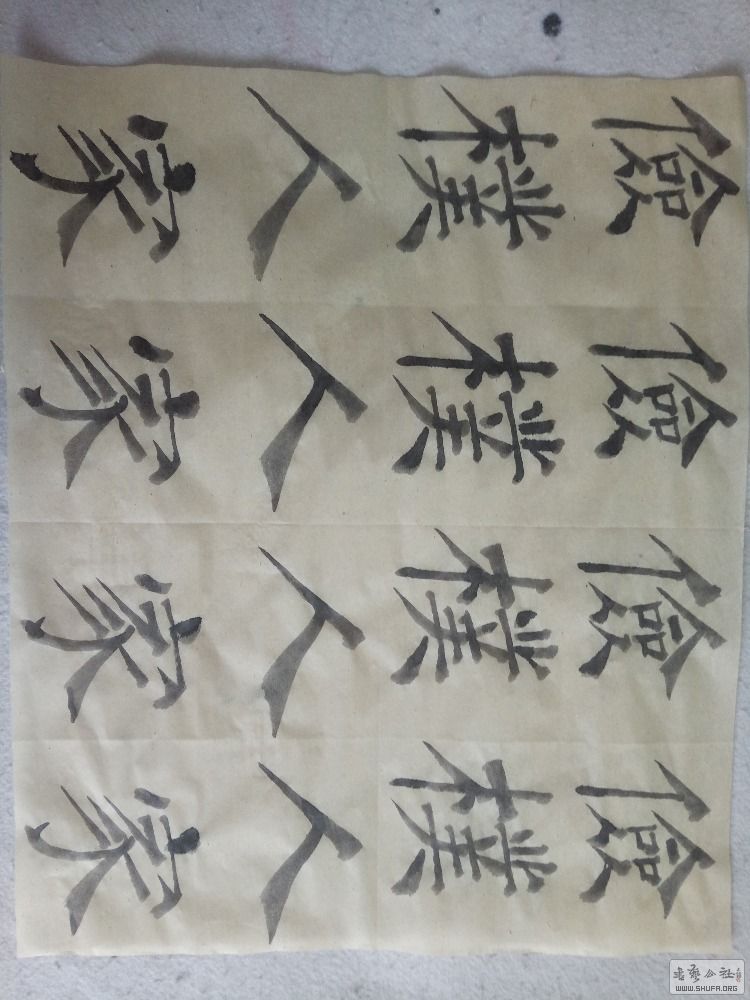 儉樸人家
儉樸人家
儉樸人家
儉樸人家
书藝公社
WWW.SHUFA.ORG